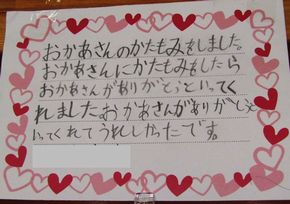 おかあさんのかたもみをしました。
おかあさんにかたもみをしたら
おかあさんがありがとうといってく
れましたおかあさんがありがとうと
いってくれてうれしかったです。